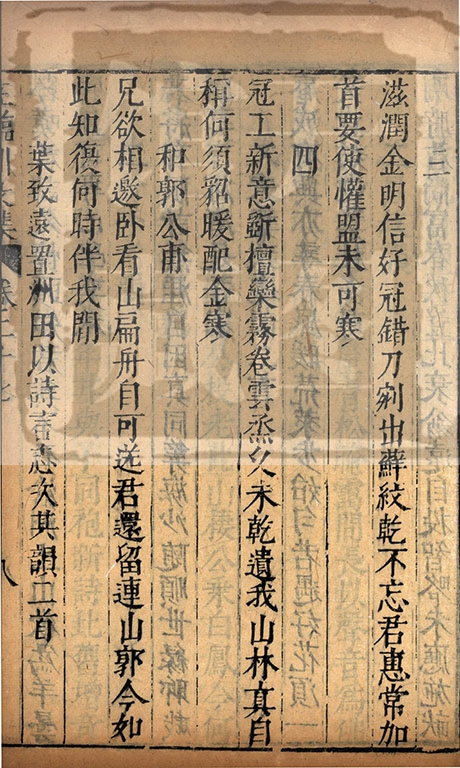 三
滋潤金明信好冠錯刀剜出蘚紋乾不忘君惠常加
首要使懽盟未可寒
四
冠工新意斷檀欒霧卷雲烝久未乾遺我山林真自
稱何須貂暖配金寒
和郭公甫
兄欲相邀卧看山扁舟自可送君還留連山郭今如
此知復何時伴我閒
葉致遠置洲田以詩言志次其韻二首
王臨川文集 卷二十七
八